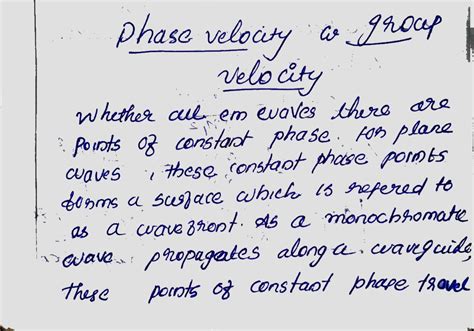 Phase velocity or group
velocity
Whether all em waves there are
points of constant phase. For plane
waves, these constant phase points
forms a surface which is refered to
as a wavefront. As a monochromatic
wave propagates along a waveguide,
these points of constant phase travel